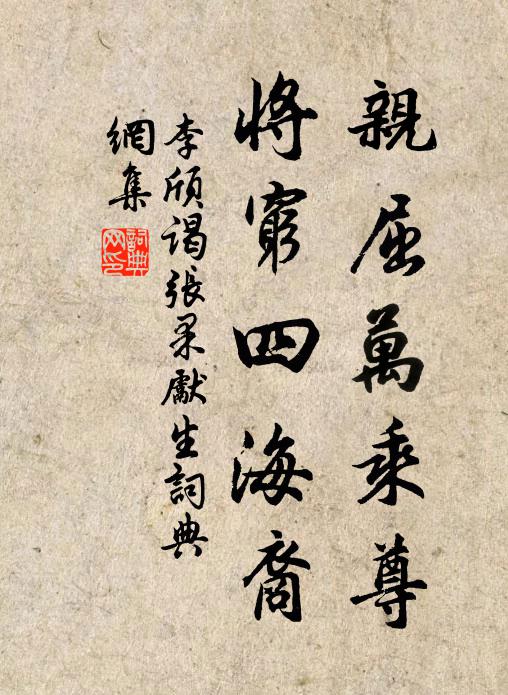 親屈萬乘尊
將窮四海裔
李頎謁張果獻生詞典
網集
詞典
网印